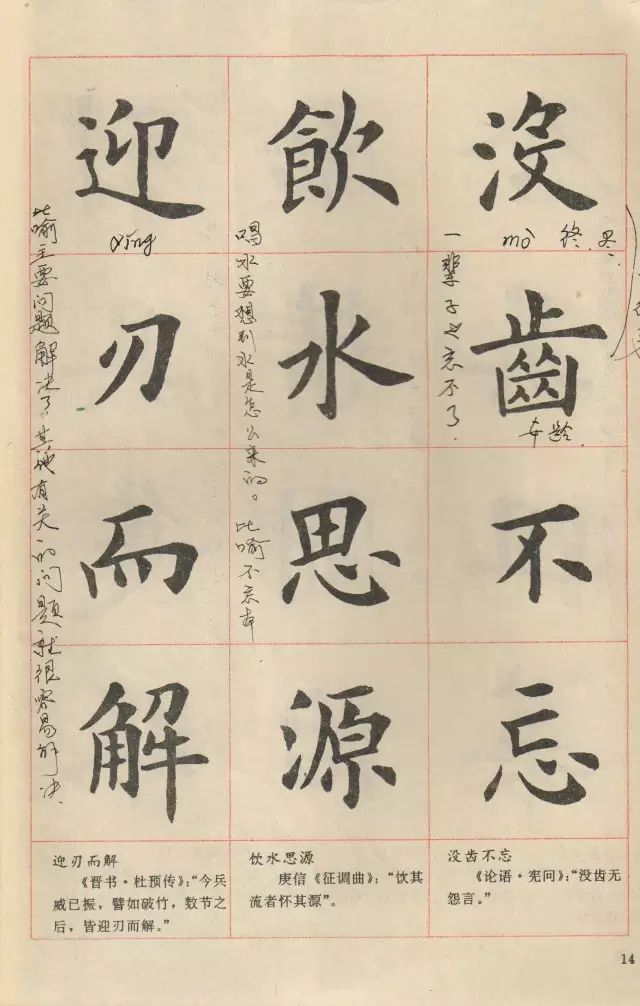 没齿不忘
飲水思源
迎刃而解
mò 终.
一辈子也忘不了.
年龄.
喝水要想到水是怎么来的。比喻不忘本
yíng
比喻主要问题解决了,其他有关的问题就很容易解决.
迎刃而解
《晋书·杜预传》:“今兵
威已振,譬如破竹,数节之
后,皆迎刃而解。”
饮水思源
庾信《征调曲》:“饮其
流者怀其源”。
没齿不忘
《论语·宪问》:“没齿无
怨言。”
14